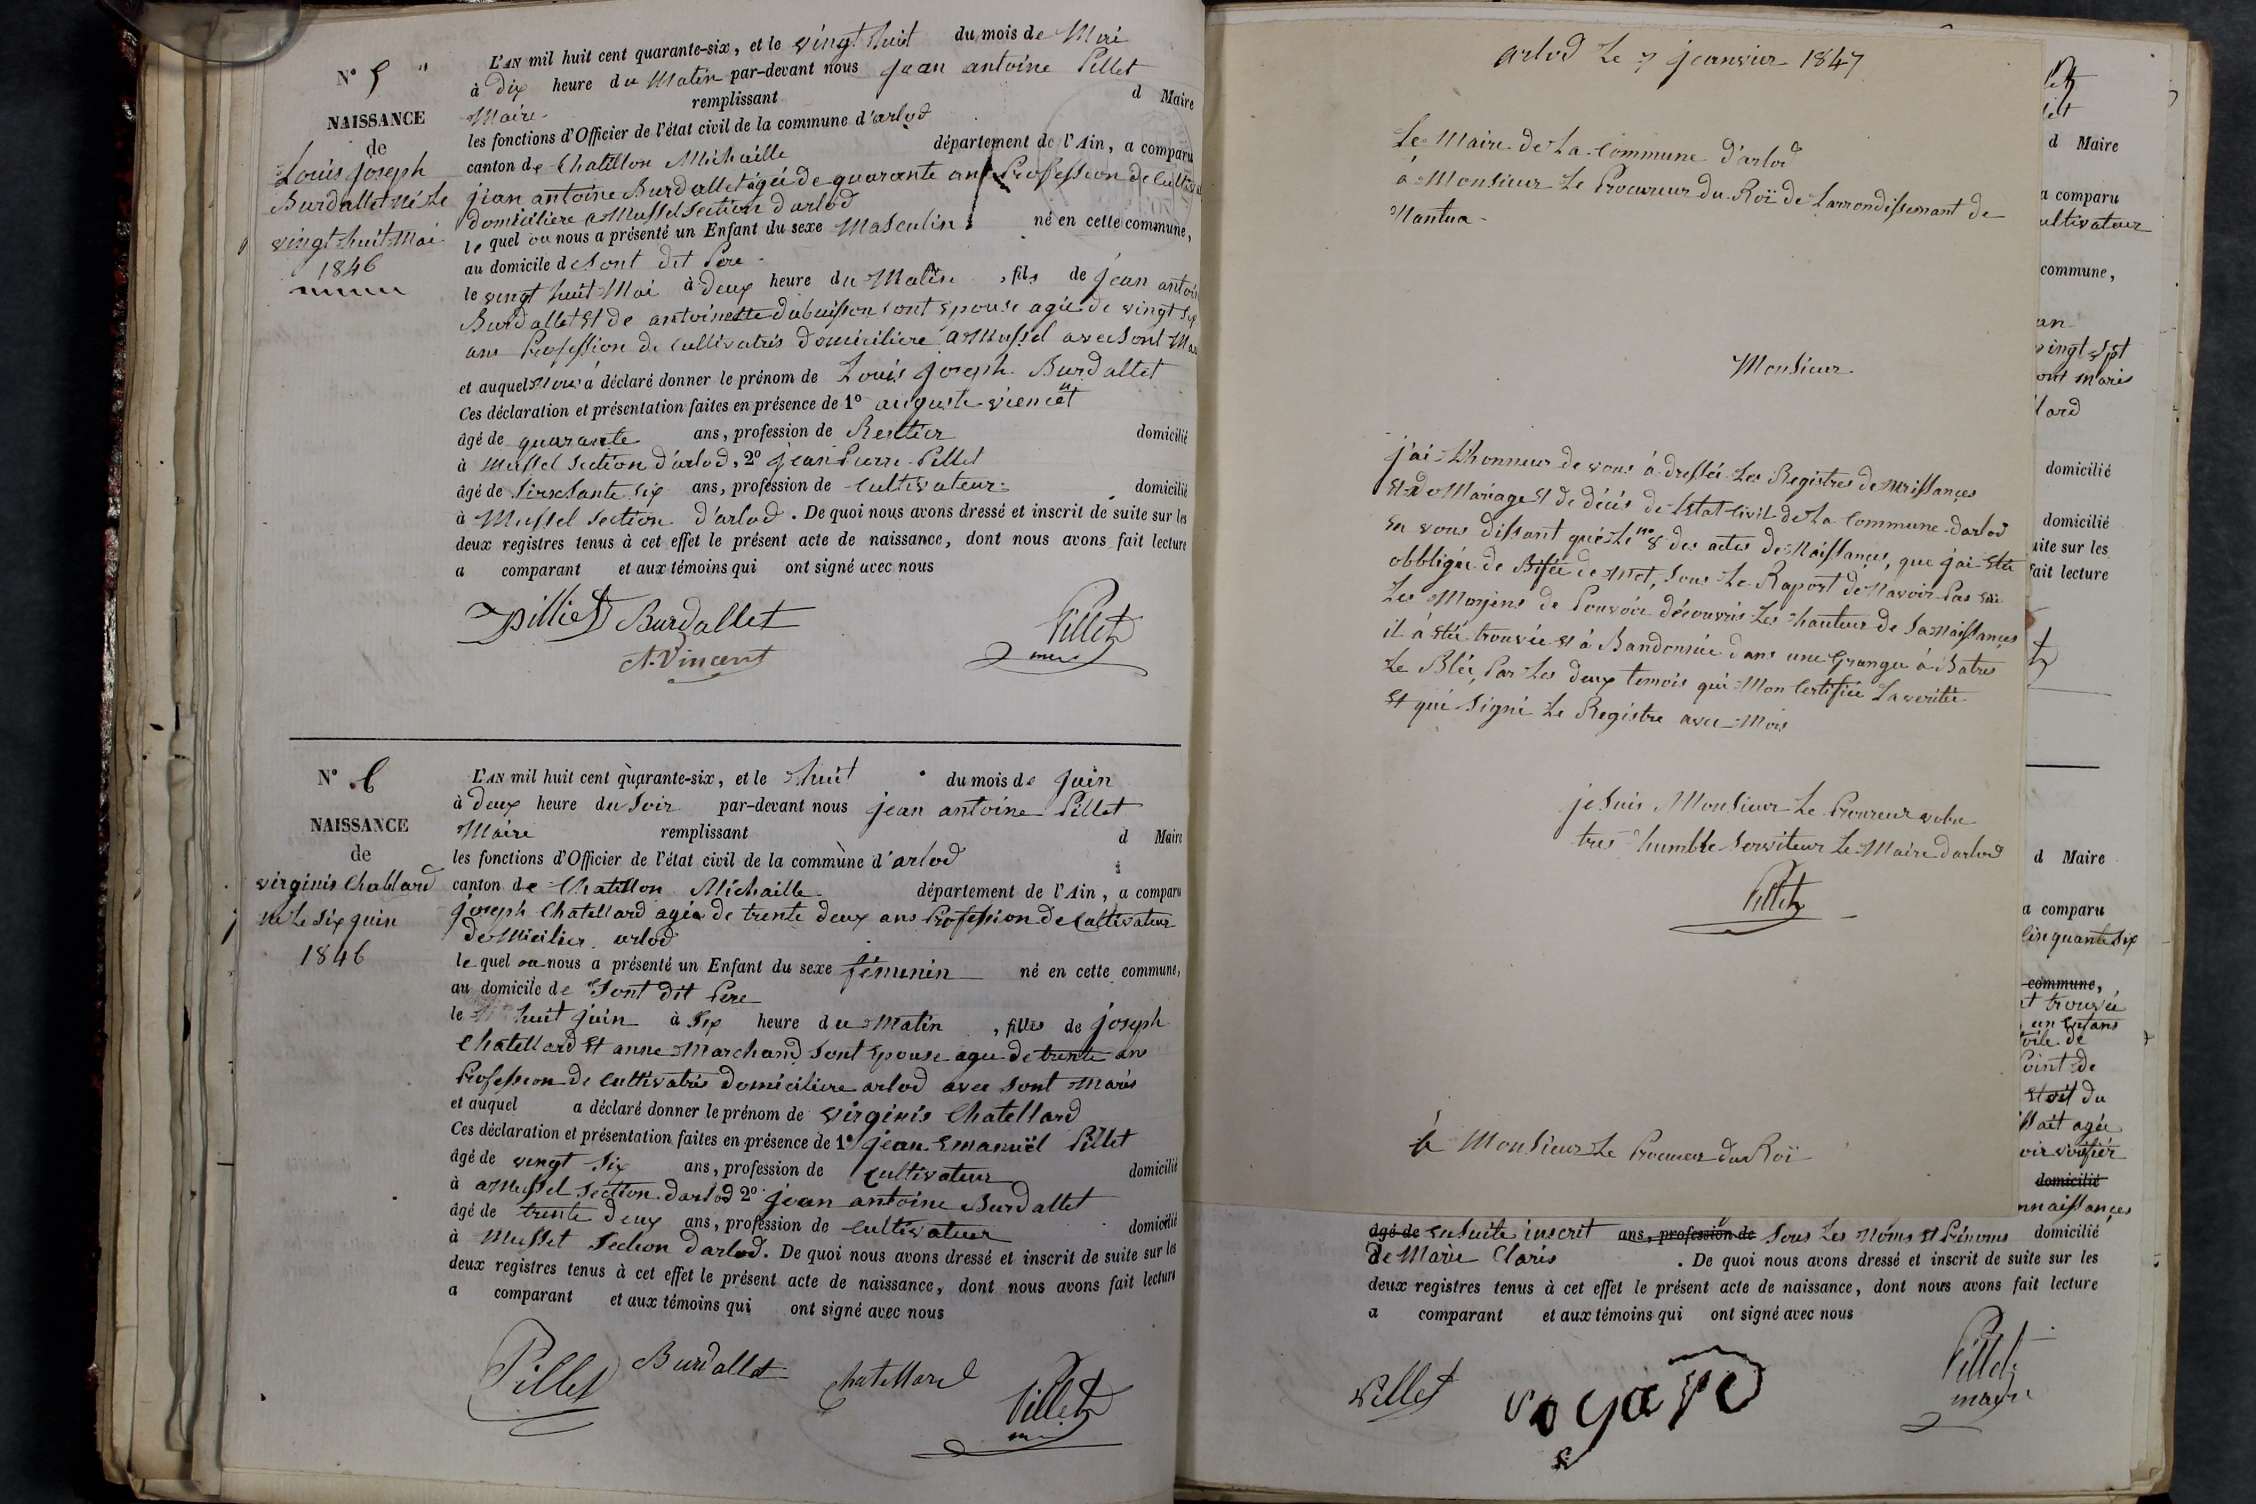 N° 5
NAISSANCE
de
Louis joseph
Burdallet né Le
vingt huit Mai
1846
L'AN mil huit cent quarante-six, et le vingt huit du mois de Mai
à dix heure du Matin par-devant nous jean antoine Pillet
Maire remplissant d Maire
les fonctions d'Officier de l'état civil de la commune d'arlod
canton de Chatillon Michaille département de l'Ain, a comparu
jean antoine Burdallet agée de quarante ans Profession de Cultivateur
domiciliere a Mussel section d'arlod
le quel ou nous a présenté un Enfant du sexe Masculin né en cette commune,
au domicile de sont dit Pere
le vingt huit Mai à deux heure du Matin, fils de jean antoine
Burdallet et de antoinette dubuisson sont epouse agée de vingt sept
ans Profession de Cultivatris domiciliere a Mussel avec sont Maris
et auquel nous a déclaré donner le prénom de Louis joseph Burdallet
Ces déclaration et présentation faites en présence de 1° auguste viencent
âgé de quarante ans, profession de Rentier domicilié
à Mussel section d'arlod, 2° jean Pierre Pillet
âgé de soixsante six ans, profession de Cultivateur domicilié
à Mussel section d'arlod. De quoi nous avons dressé et inscrit de suite sur les
deux registres tenus à cet effet le présent acte de naissance, dont nous avons fait lecture
a comparant et aux témoins qui ont signé avec nous
Pilliet Burdallet Pillet
A. Vincent
N° 6
NAISSANCE
de
virginis Chatlard
né Le six juin
1846
L'AN mil huit cent quarante-six, et le huit du mois de juin
à deux heure du soir par-devant nous jean antoine Pillet
Maire remplissant d Maire
les fonctions d'Officier de l'état civil de la commune d'arlod
canton de Chatillon Michaille département de l'Ain, a comparu
joseph Chatellard agée de trente deux ans Profession de Cultivateur
domicilier arlod
le quel ou nous a présenté un Enfant du sexe féminin né en cette commune,
au domicile de sont dit Pere
le huit juin à six heure du Matin, filles de joseph
Chatellard et anne Marchand sont epouse agee de trente ans
Profession de Cultivatris domiciliere arlod avec sont Maris
et auquel a déclaré donner le prénom de virginis Chatellard
Ces déclaration et présentation faites en présence de 1° jean Emanuël Pillet
âgé de vingt six ans, profession de Cultivateur domicilié
à a Mussel section darlod 2° jean antoine Burdallet
âgé de trente deux ans, profession de Cultivateur domicilié
à Mussel section darlod. De quoi nous avons dressé et inscrit de suite sur les
deux registres tenus à cet effet le présent acte de naissance, dont nous avons fait lecture
a comparant et aux témoins qui ont signé avec nous
Pillet Burdallet Chatellard Pillet
arlod Le 7 janvier 1847
Le Maire de La Commune d'arlod
á Monsieur Le Procureur du Roï de Larrondissemant de
Nantua
Monsieur
j'ai L'honneur de vous á dressée Les Registres de naissançes
et de Mariage et de décés de Létat Civil de La Commune darlod
En vous dissant qué Le n° 8 des actes de Naissançes, que j'ai été
obbligée de de Met, sous Le Raport de Navoir Pas eu
Les Moyiens de Pouvoir découvris Les hauteur de sa Naissançes
il á été trouvée et á Bandonnée dans une Grange á Batres
Le Blée, Par Les deux temois qui Mon Certifiée La vérité
et qui signé Le Registre avec Mois
je suis Monsieur Le Procureur votre
tres humble serviteur Le Maire darlod
Pillet
á Monsieur Le Procureur du Roï
d Maire
a comparu
ultivateur
commune,
an
vingt sept
ont maris
lard
domicilié
domicilié
uite sur les
fait lecture
d Maire
a comparu
Cinquante six
commune,
et trouvée
un enfans
toile de
Point de
et oit du
ssait agée
oir vérifiér
domicilié
nnaissançes
âgé de ensuite inscrit ans, profession de sous Les Noms et Prénoms domicilié
de Marie Claris. De quoi nous avons dressé et inscrit de suite sur les
deux registres tenus à cet effet le présent acte de naissance, dont nous avons fait lecture
a comparant et aux témoins qui ont signé avec nous
Pillet voyard Pillet
mayre